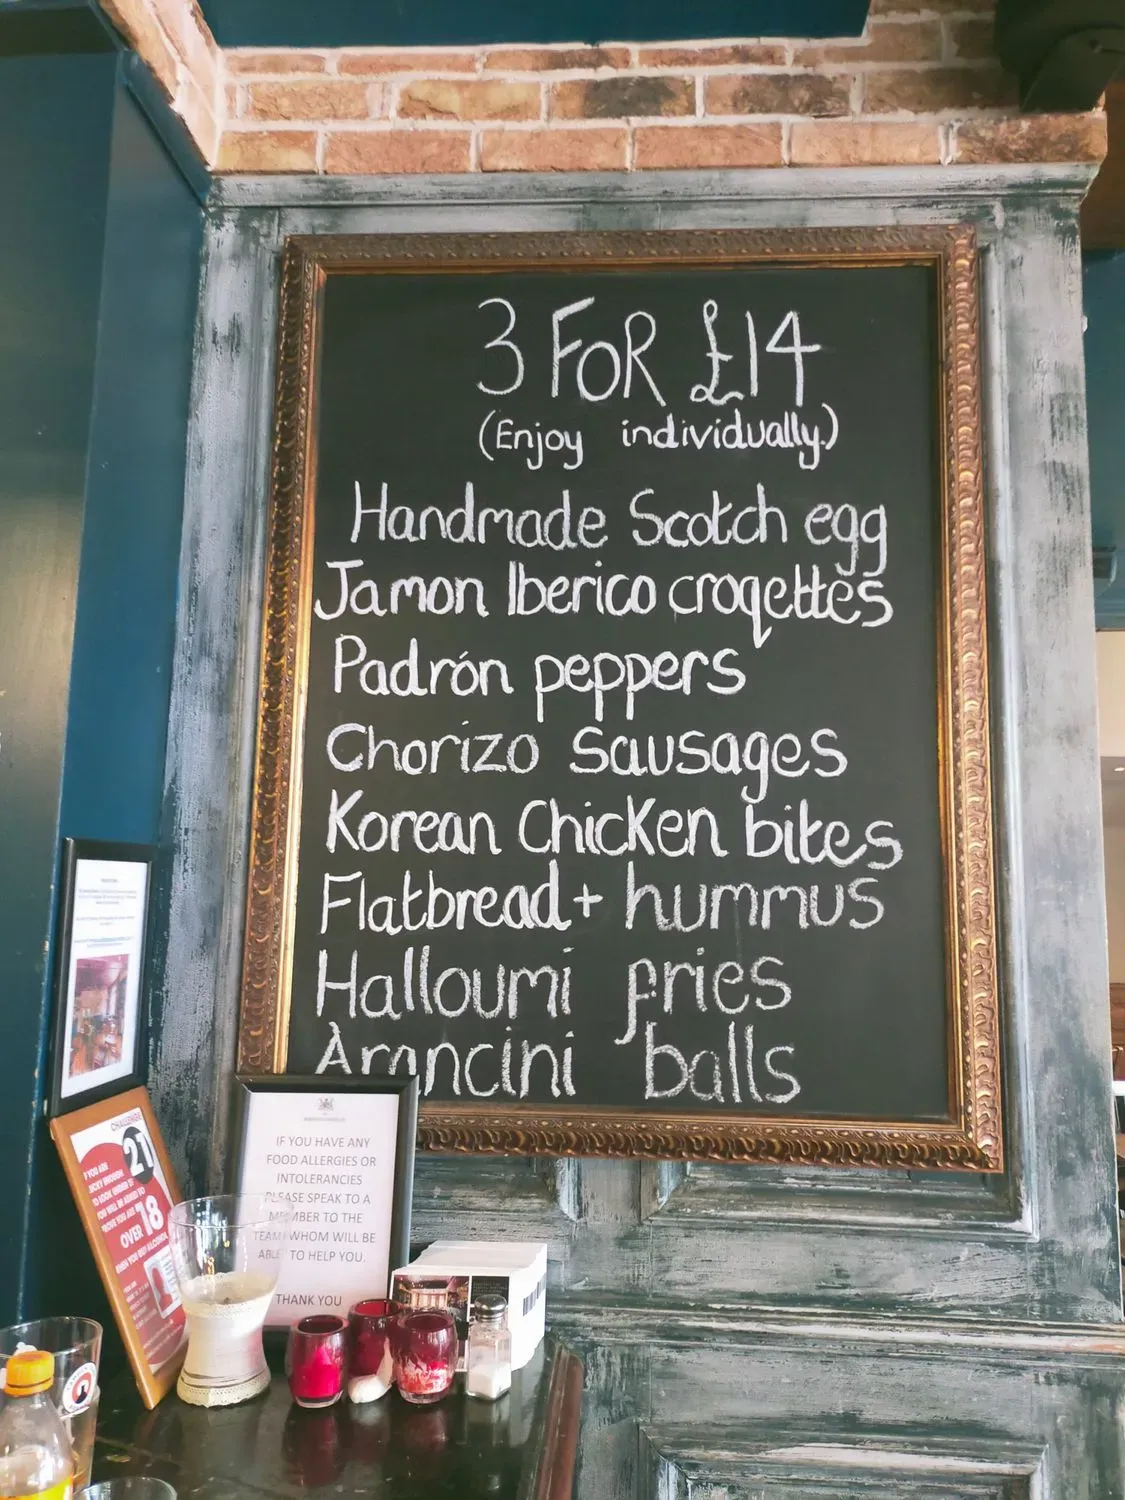 3 FOR £14
(Enjoy individually.)
Handmade Scotch egg
Jamon Iberico croqettes
Padrón peppers
Chorizo Sausages
Korean Chicken bites
Flatbread + hummus
Halloumi fries
Arancini balls
IF YOU HAVE ANY
FOOD ALLERGIES OR
INTOLERANCIES
PLEASE SPEAK TO A
MEMBER TO THE
TEAM WHOM WILL BE
ABLE TO HELP YOU.
THANK YOU
CHALLENGE
21
OVER 18
WHEN YOU BUY ALCOHOL